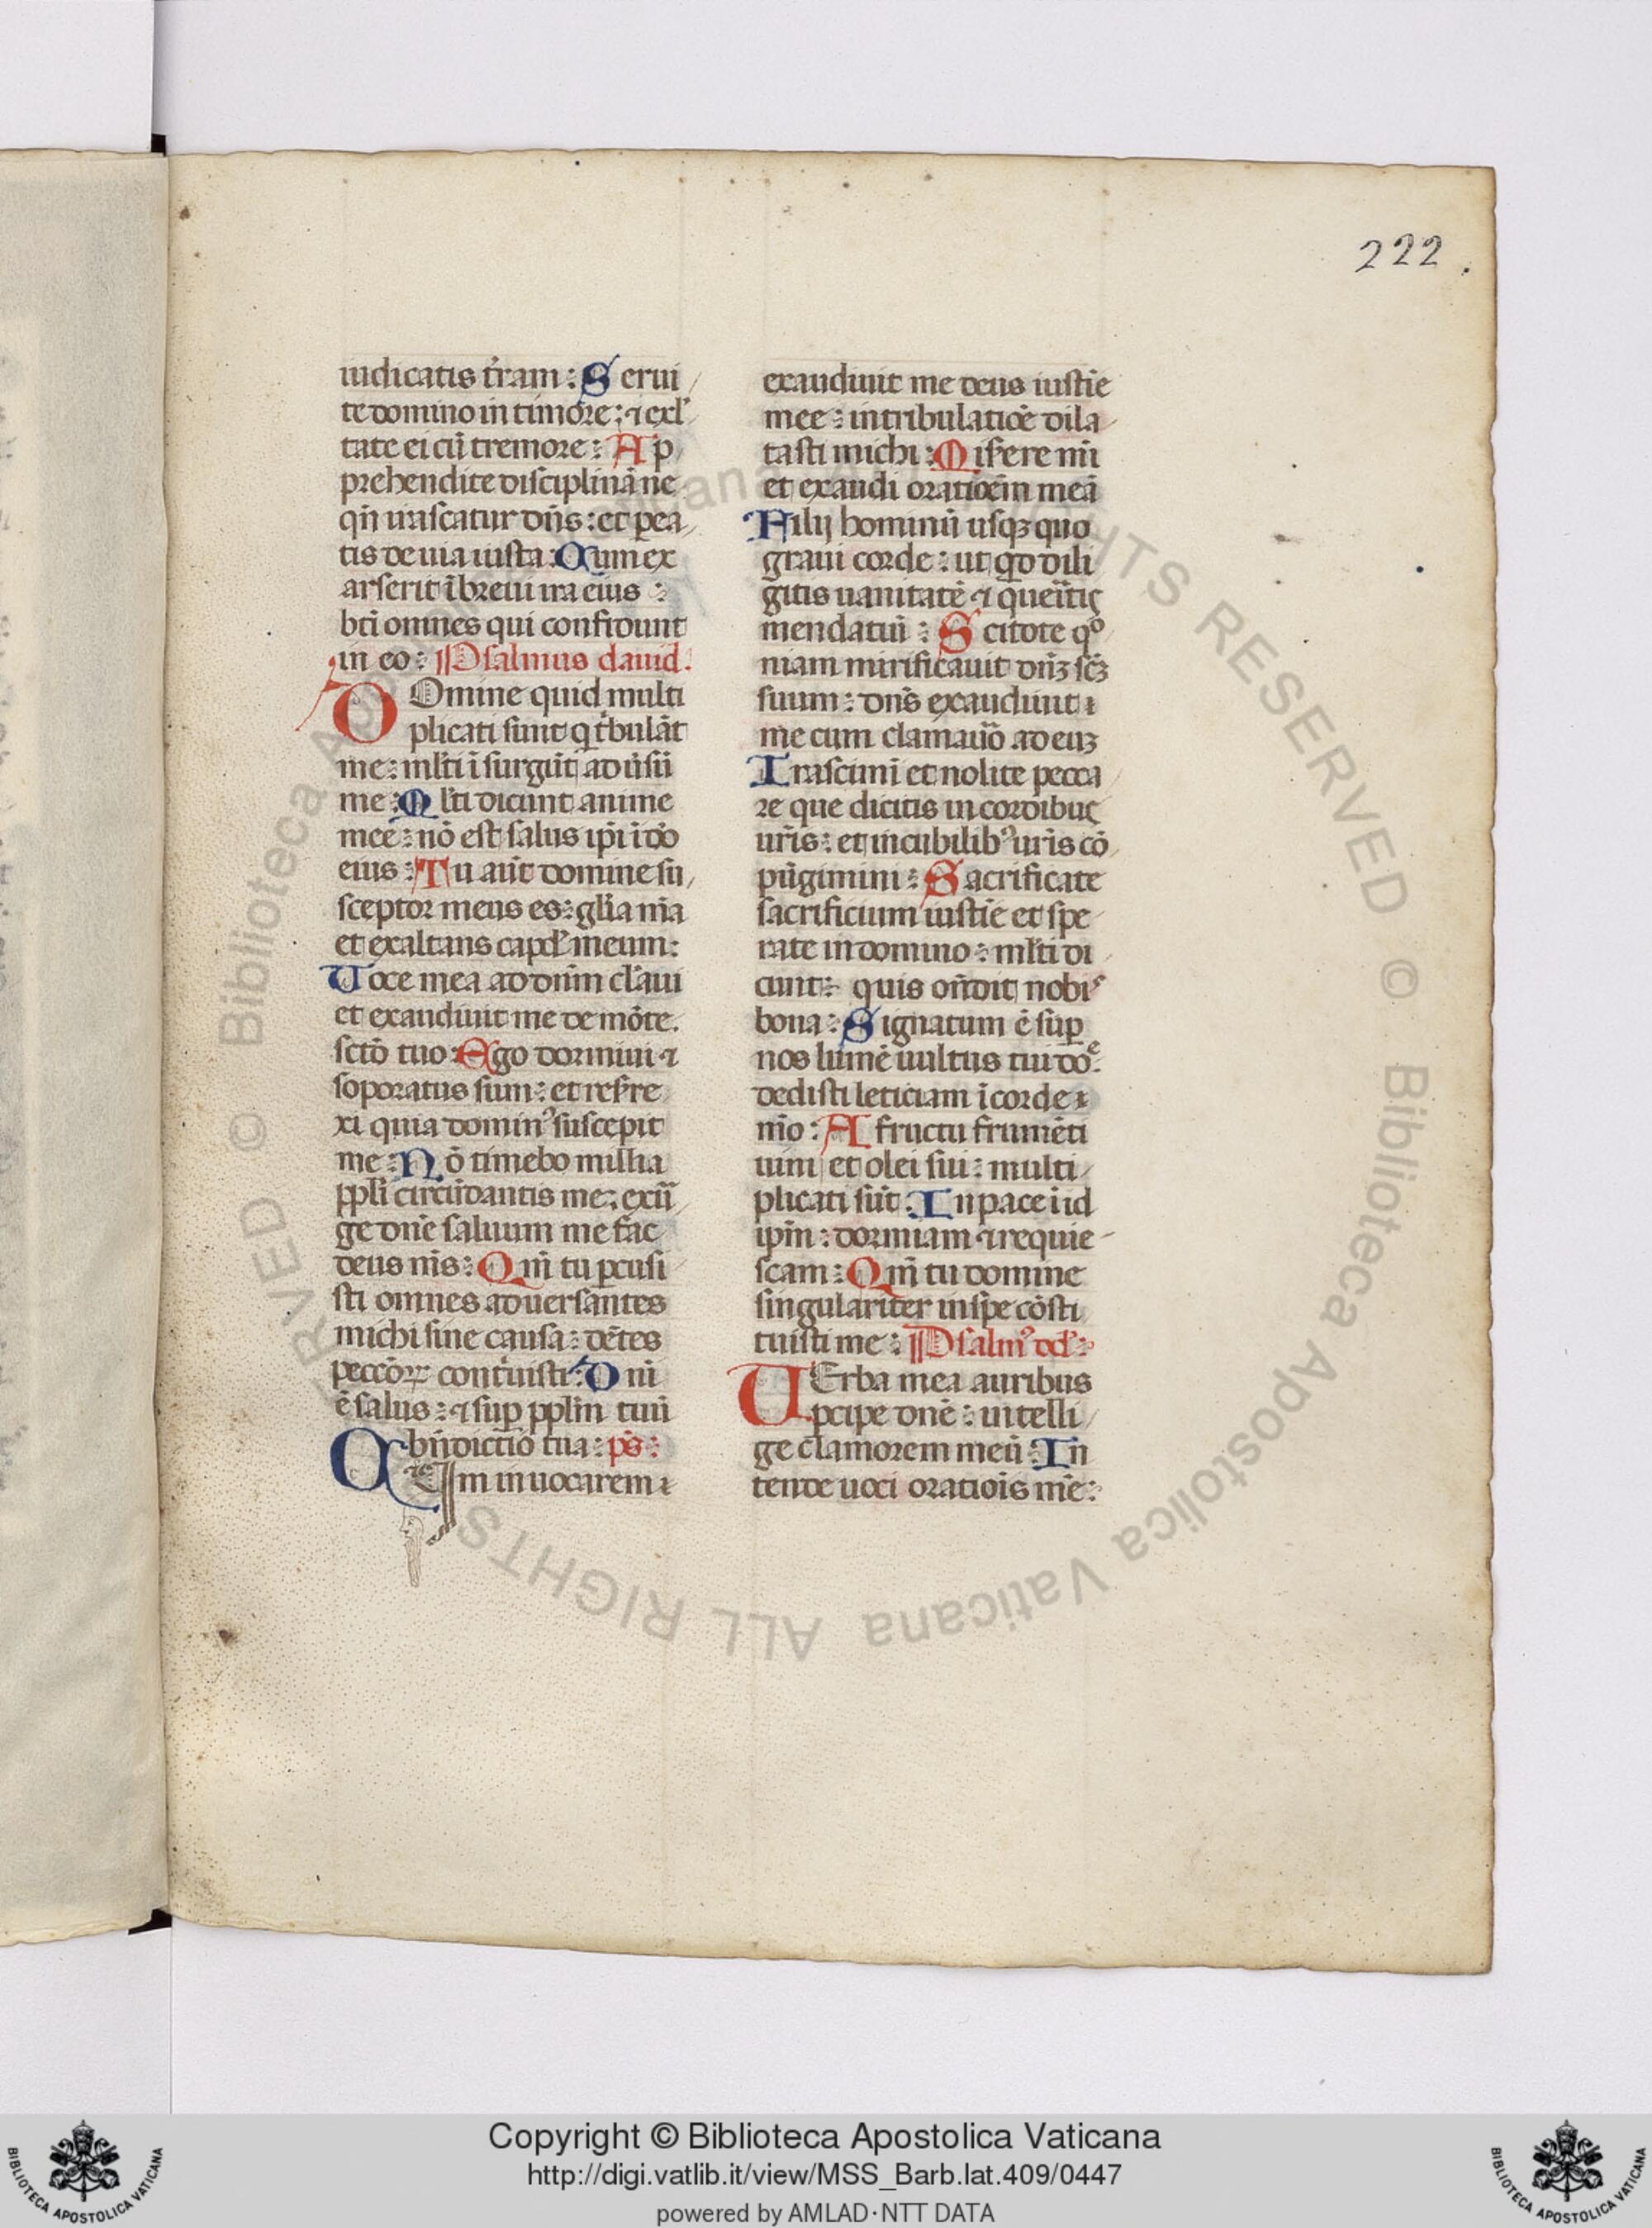 222.
iudicatis t̃ram : Serui
te domino in timore : ⁊ exl̃
tate ei cũ tremore : Ap
prehendite disciplinã ne
qñ irascatur dñs : et pea
tis de uia iusta : Cum ex
arserit ĩ breui ira eius :
bti omnes qui confidunt
in eo : Psalmus dauid.
DOmine quid multi
plicati sunt q̃ t̃bulãt
me : ml̃ti ĩsurgũt aduˀsũ
me : Ml̃ti dicunt anime
mee : nõ est salus ip̃i ĩ dõ
eius : Tu aut̃ domine su
sceptor meus es : gl̃ia mã
et exaltans caput meum :
Uoce mea ad dñm cl̃aui
et exaudiuit me de mõte
scto tuo : Ego dormiui ⁊
soporatus sum : et resr̃re
xi quia dominꝰ suscepit
me : Nõ timebo milia
ppl̃i circũdantis me : exũ
ge dñe saluum me fac
deus m̃s : Qm̃ tu ꝑcusi
sti omnes aduersantes
michi sine causa : dẽtes
peccõꝝ cont̃uisti : Dñi
ẽ salus : ⁊ suꝑ ppl̃m tuũ
bñdictio tua : ps̃ :
CUm inuocarem
exaudiuit me deus iustic̃e
mee : in tribulatiõe dila
tasti michi : Misere mĩ
et exaudi oratioẽm meã
Filij hominũ usqꝫ quo
graui corde : ut qͥd dili
gitis uanitatẽ ⁊ querĩtis
mendatiũ : Scitote qͦ
niam mirificauit dñs scm̃
suum : dñs exaudiuit
me cum clamauõ ad euꝫ
Irascimĩ et nolite pecca
re que dicitis in cordibus
ur̃is : et in cubilibꝰ ur̃is cõ
pũgimini : Sacrificate
sacrificium iustic̃e et spe
rate in domino : ml̃ti di
cunt : quis oñdit nobis
bona : Signatum ẽ suꝑ
nos lumẽ uultus tui doͤ :
dedisti leticiam ĩ corde
mõ : A fructu frumẽti
uini et olei sui : multi
plicati sũt : In pace ĩ id
ipm̃ : dormiam ⁊ requie
scam : Qm̃ tu domine
singulariter in spe cõsti
tuisti me : Psalmꝰ dd̃ :
UErba mea auribus
ꝑcipe dñe : intelli
ge clamorem meũ : In
tende uoci oratiõis mẽ :
Copyright © Biblioteca Apostolica Vaticana
http://digi.vatlib.it/view/MSS_Barb.lat.409/0447
powered by AMLAD·NTT DATA
BIBLIOTECA APOSTOLICA VATICANA
BIBLIOTECA APOSTOLICA VATICANA